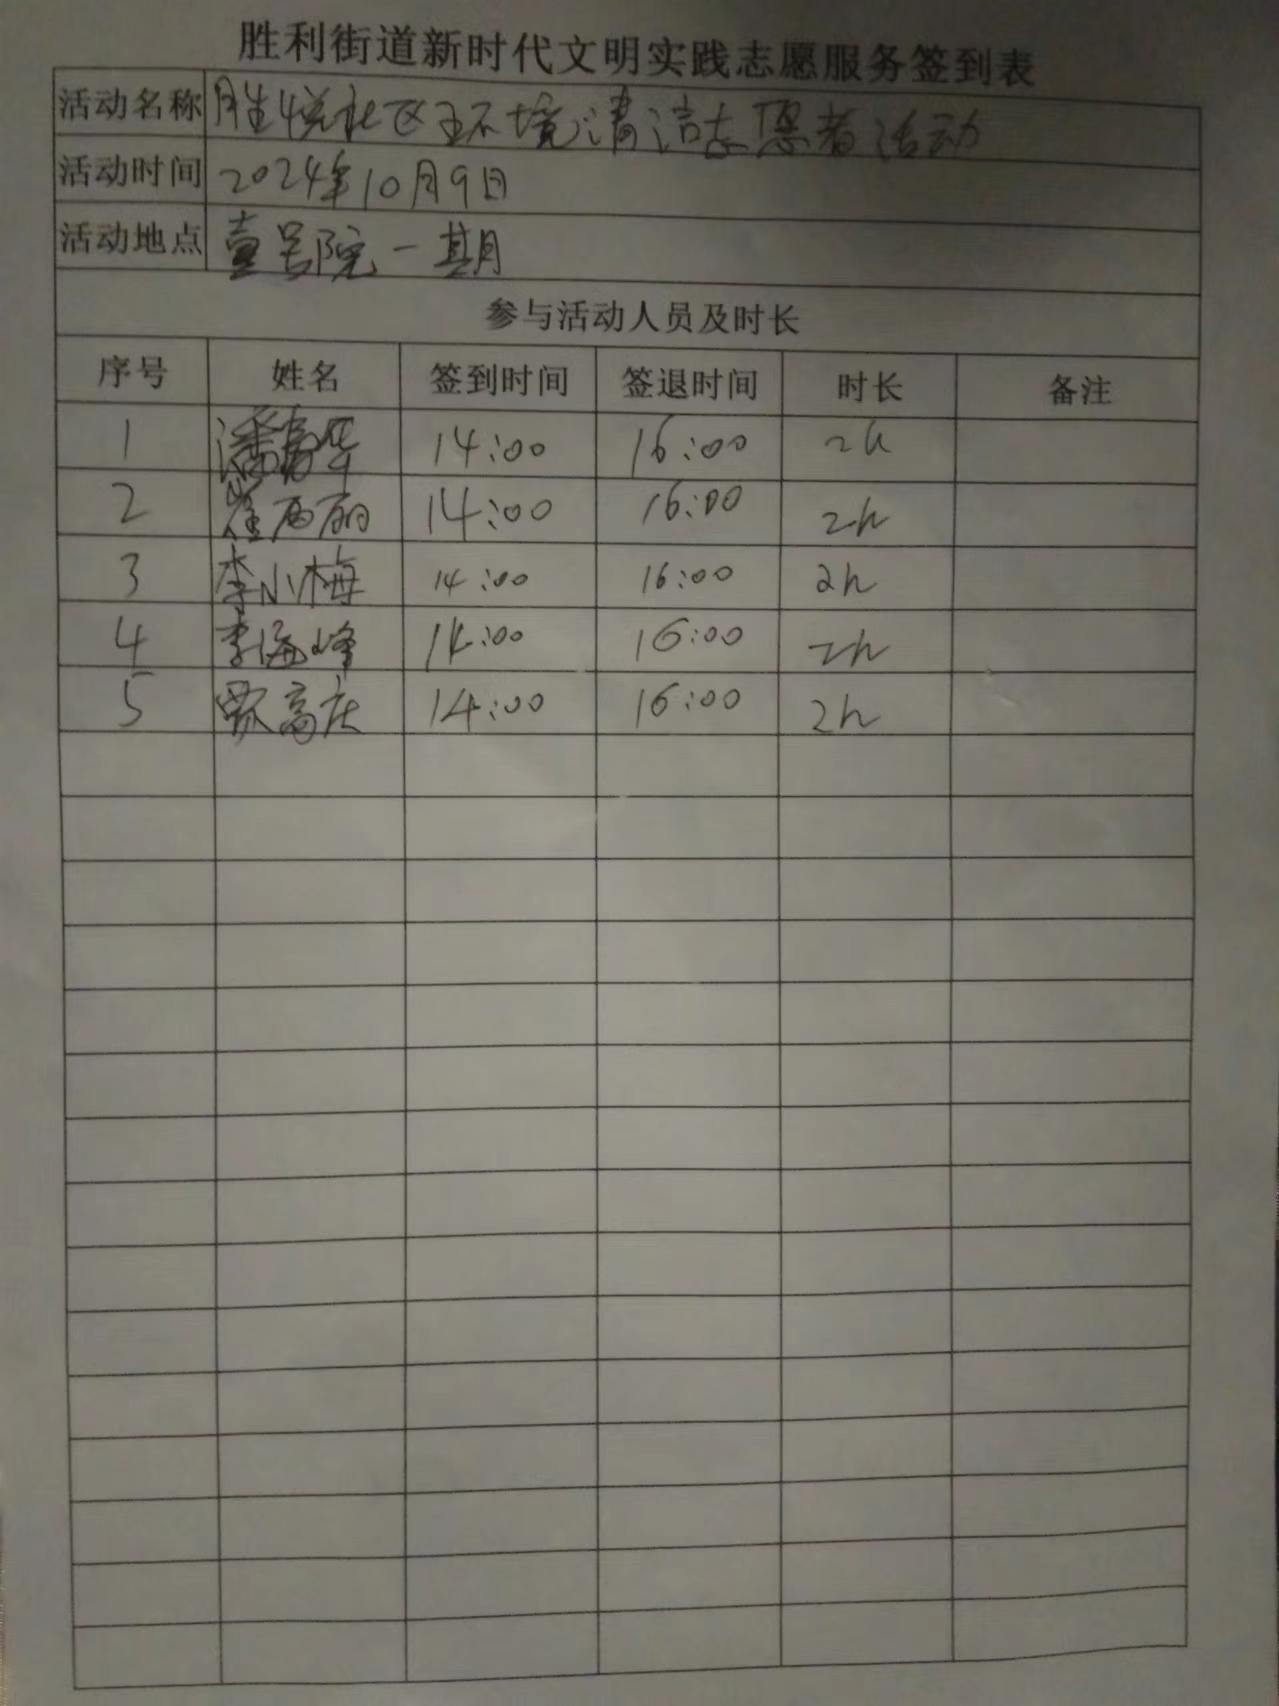 胜利街道新时代文明实践志愿服务签到表
活动名称 胜悦社区环境清洁志愿者活动
活动时间 2024年10月9日
活动地点 壹号院一期
参与活动人员及时长
序号 姓名 签到时间 签退时间 时长 备注
1 潘 华 14:00 16:00 2h
2 崔西丽 14:00 16:00 2h
3 李小梅 14:00 16:00 2h
4 李海峰 14:00 16:00 2h
5 贾高庆 14:00 16:00 2h